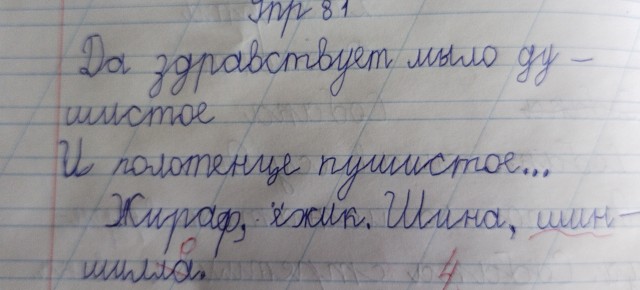 Упр 81
Да здравствует мыло ду-
шистое
И полотенце пушистое...
Жираф, ёжик. Шина, шин-
шилла.
4